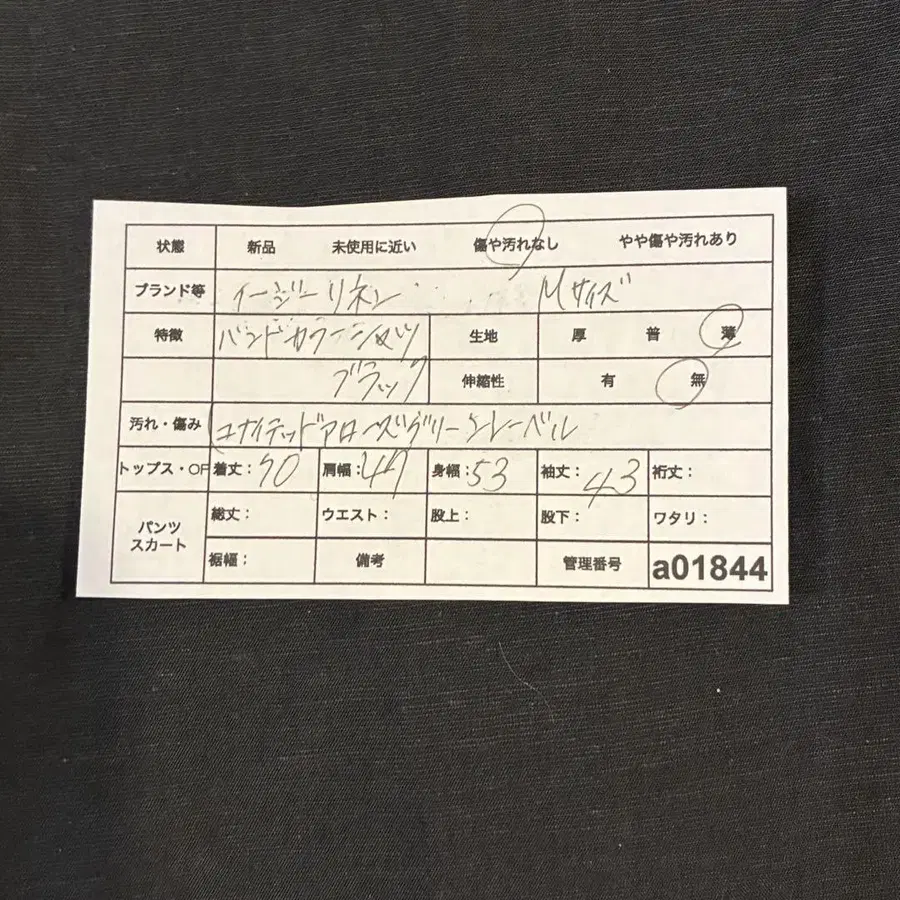 状態 新品 未使用に近い 傷や汚れなし やや傷や汚れあり
ブランド等 イージーリネン Mサイズ
特徴 バンドカラーシャツ 生地 厚 普 薄
ブラック 伸縮性 有 無
汚れ・傷み ユナイテッドアローズグリーンレーベル
トップス・OP 着丈：70 肩幅：47 身幅：53 袖丈：43 裄丈：
パンツ スカート 総丈： ウエスト： 股上： 股下： ワタリ：
裾幅： 備考 管理番号 a01844